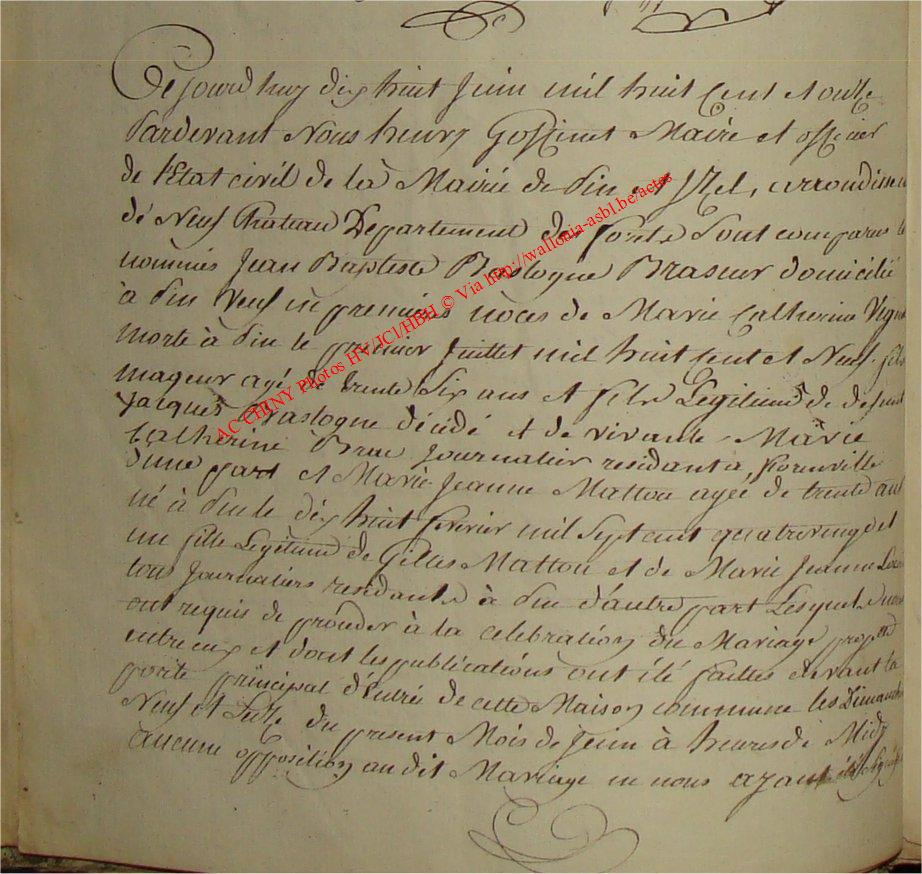 Cejourdhuy dix huit Juin mil huit Cent et onze
Pardevant Nous henry Gossinet Maire et officier
de l'Etat civil de la Mairie de Pin et Izel, arrondissem
de Neuf Chateau Département des forets Sont comparus le
nommés Jean Baptiste Bastogne Braseur domicilié
à Pin Veuf en premiers nôces de Marie Catherine
morte à Pin le premier Juillet mil huit Cent et Neuf fils
mageur agé de trente Six ans et fils Legitime de defunt
Jacques Bastogne décédé et de vivante Marie
Catherine Journalier residant a florenville
d'une part et Marie Jeanne Mattou agée de trente ans
né à Pin le dix huit fevrier mil Sept cent quatrevingt et
un fille Legitime de Gilles Mattou et de Marie Jeanne
tous Journaliers residants à Pin d'autre part Lesquels nous
ont requis de proceder à la celebration du Mariage projetté
entre eux et dont les publications ont été faittes devant la
porte principal d'Entrée de cette Maison commune les Dimanche
Neuf et Seize du present Mois de Juin à heures de Midy
aucune opposition audit Mariage ne nous ayant été signifié
AC CHINY Photos HV/JCl/HBH © Via http://wallonia-asbl.be/actes